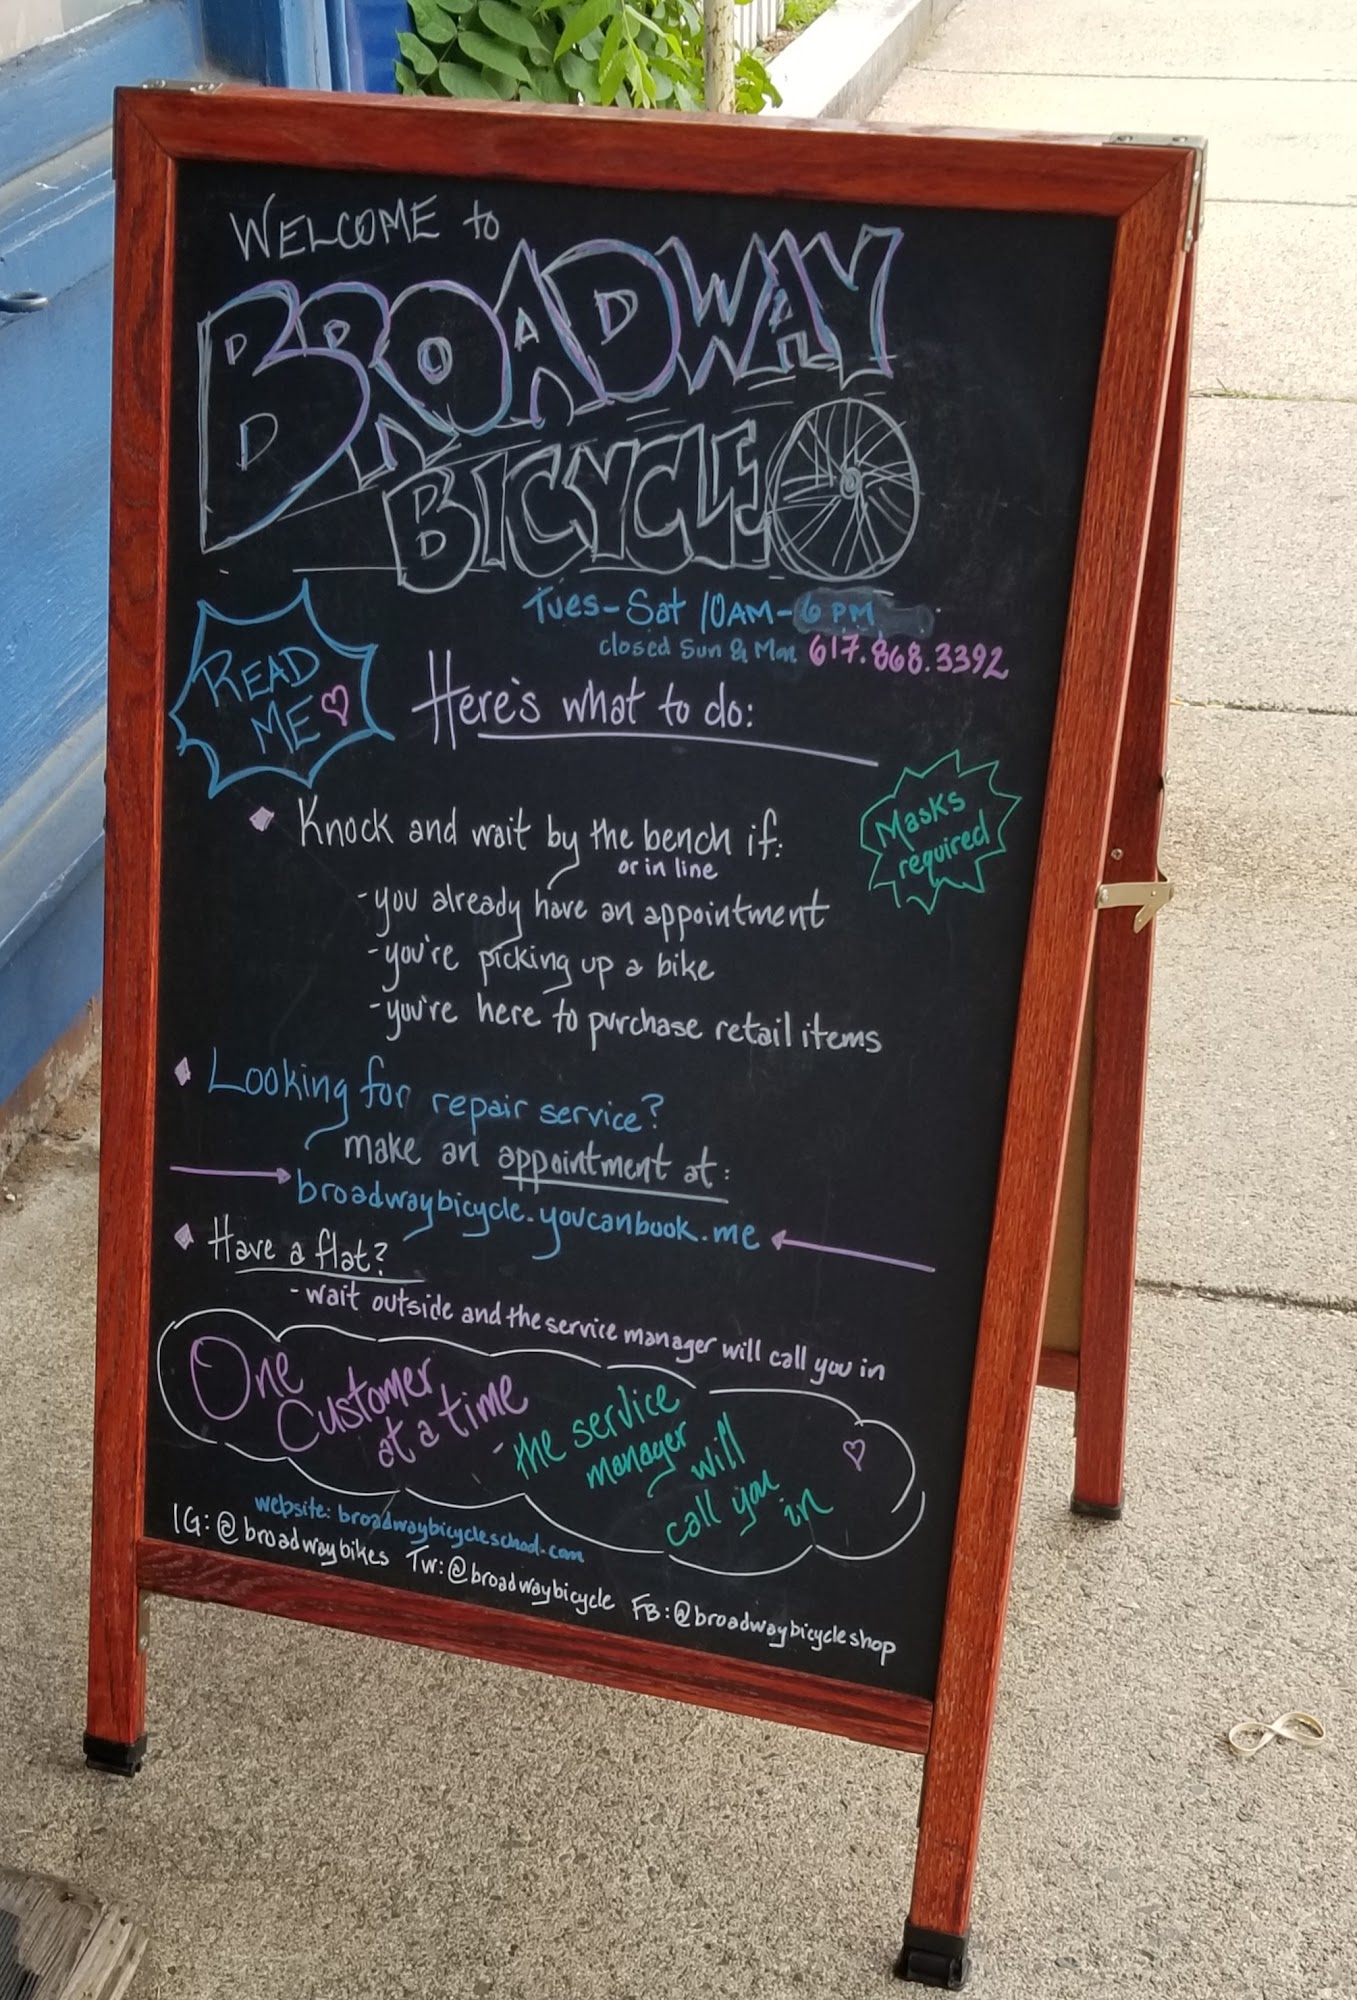 WELCOME to
BROADWAY
BICYCLE
Tues-Sat 10AM-6 PM
closed Sun & Mon 617.868.3392
READ
ME
Here's what to do:
Masks
required
Knock and wait by the bench if:
or in line
-you already have an appointment
-you're picking up a bike
-you're here to purchase retail items
Looking for repair service?
make an appointment at:
broadwaybicycle.youcanbook.me
Have a flat?
- wait outside and the service manager will call you in
One
Customer
at a time
- the service
manager will
call you in
website: broadwaybicycleschool.com
IG: @broadwaybikes Tw: @broadwaybicycle FB: @broadwaybicycleshop